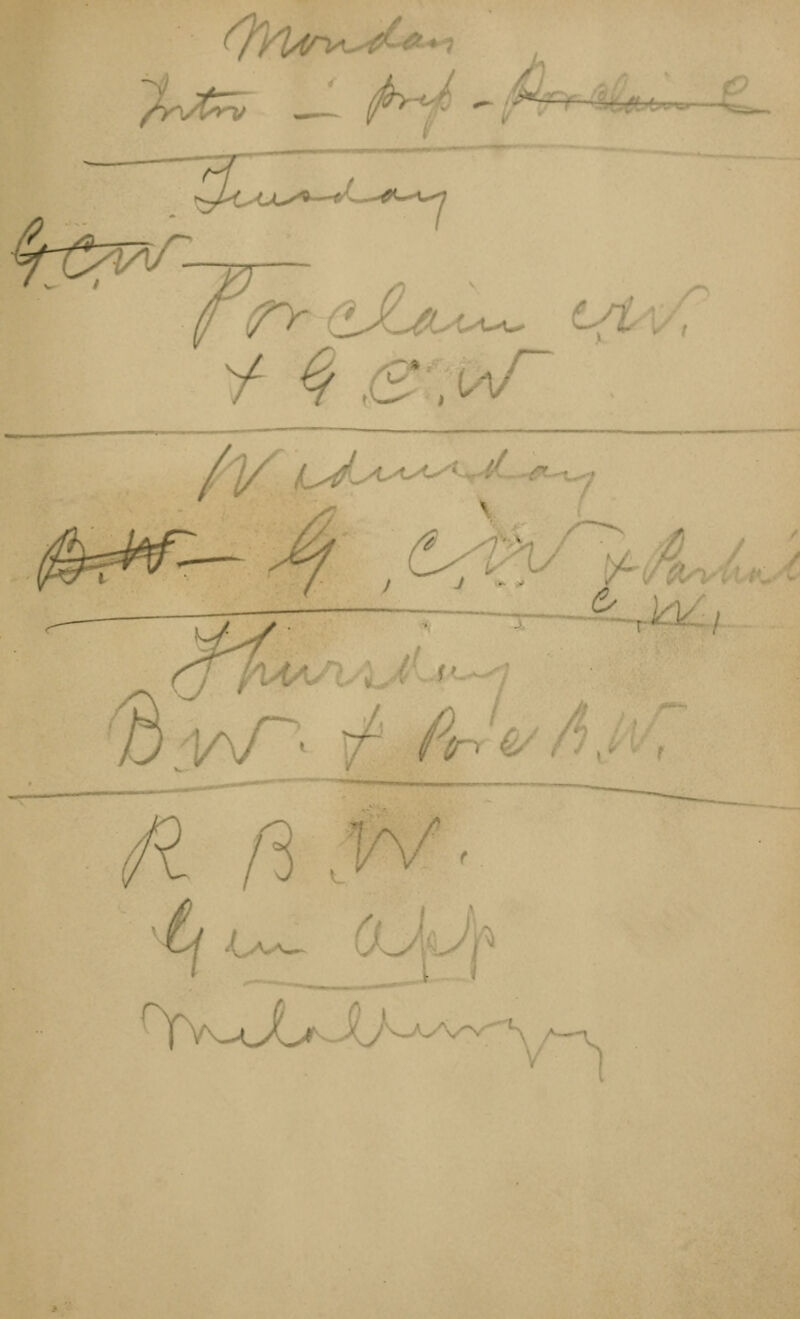 Monday
Intro - prep - Porclain C
Tuesday
G.C.W
Porclain C.W.
+ G.C.W
Wednesday
B.W - G.C.W + Partial
C.W.
Thursday
B.W. + Porc B.W.
R B.W.
Gen App
Metallurgy